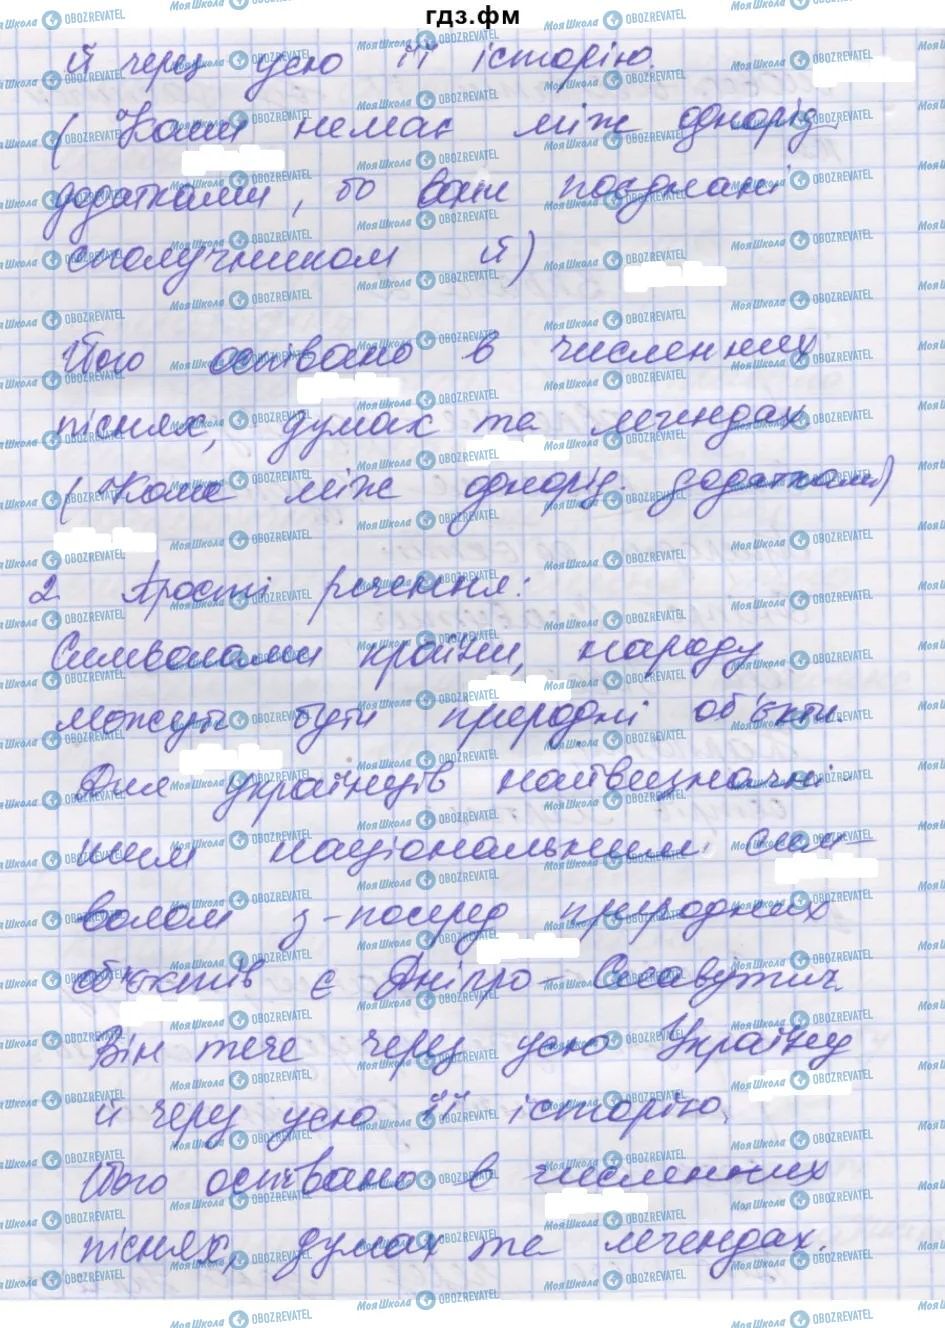 гдз.фм
й через усю її історію.
(Коми немає між однорід.
додатками, бо вони поєднані
сполучником й)
Його оспівано в численних
піснях, думах та легендах
(Кома між однорід. додатками)
2. Прості речення:
Символами країни, народу
можуть бути природні об'єкти.
Для українців найвизначні-
шим національним сим-
волом з-посеред природних
об'єктів є Дніпро-Славутич.
Він тече через усю Україну
й через усю її історію.
Його оспівано в численних
піснях, думах та легендах.